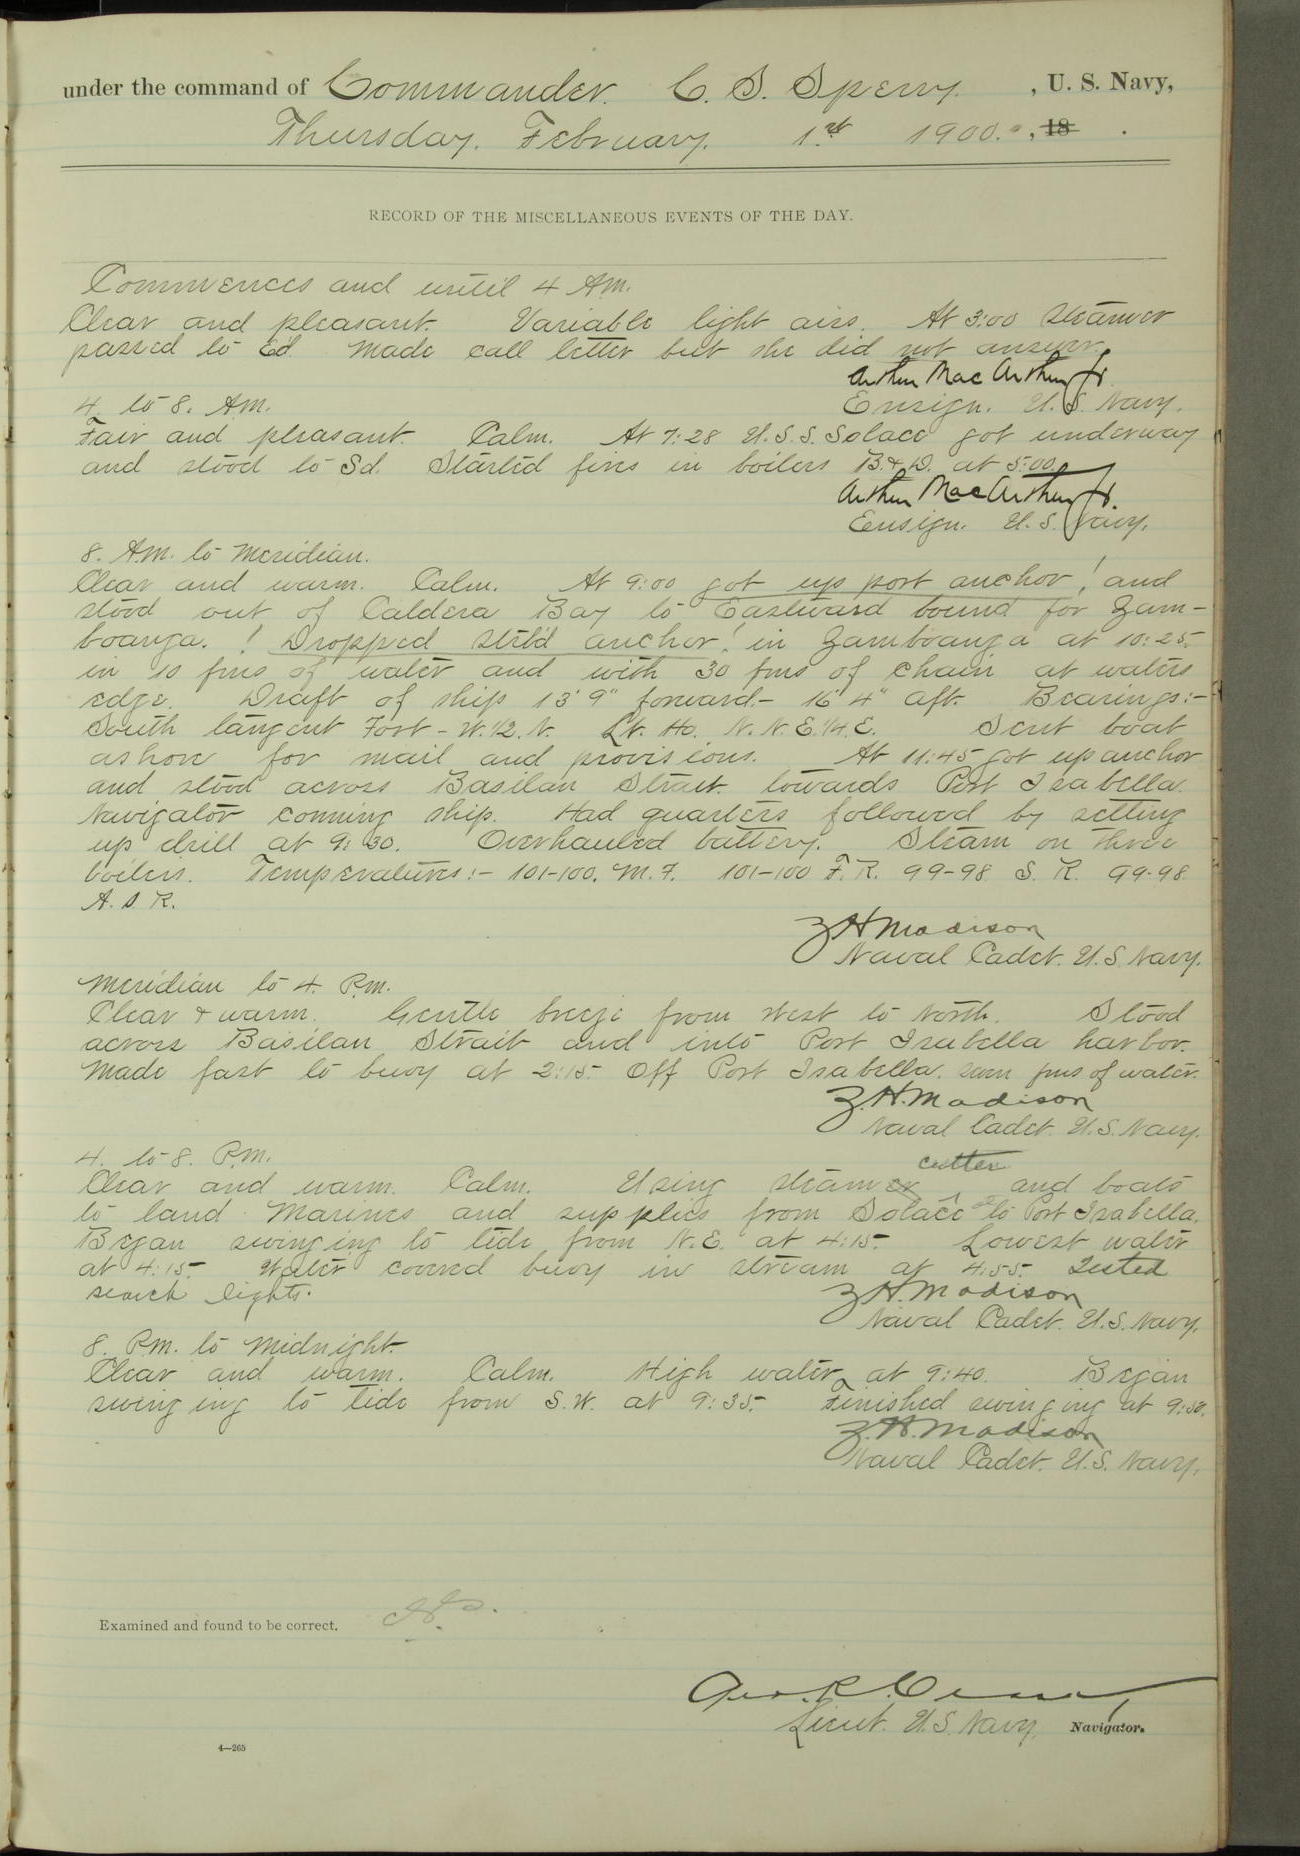 under the command of Commander C. S. Sperry , U. S. Navy,
Thursday. February. 1st 1900. , 18 .
RECORD OF THE MISCELLANEOUS EVENTS OF THE DAY.
Commences and until 4 A.M.
Clear and pleasant. Variable light airs. At 3:00 steamer
passed to Ed. Made call letter but she did not answer.
Arthur MacArthur Jr.
Ensign. U.S. Navy.
4. to 8. A.M.
Fair and pleasant. Calm. At 7:28 U.S.S. Solace got underway
and stood to Sd. Started fires in boilers B. & D. at 5:00.
Arthur MacArthur Jr.
Ensign. U.S. Navy.
8. A.M. to Meridian.
Clear and warm. Calm. At 9:00 got up port anchor! and
stood out of Caldera Bay to Eastward bound for Zam-
boanga. ! Dropped stb'd anchor! in Zamboanga at 10:25.
in 10 fms of water and with 30 fms of chain at waters
edge. Draft of ship 13' 9" forward.- 16' 4" aft. Bearings:-
South tangent Fort - W. 1/2. N. Lt. Ho. N. N. E. 1/4. E. Sent boat
ashore for mail and provisions. At 11:45 got up anchor
and stood across Basilan Strait towards Port Isabella.
Navigator conning ship. Had quarters followed by setting
up drill at 9:30. Overhauled battery. Steam on three
boilers. Temperatures:- 101-100. M. F. 101-100 F. R. 99-98 S. R. 99-98
A. S. R.
Z H Madison
Naval Cadet. U.S. Navy.
Meridian to 4. P.M.
Clear & warm. Gentle breeze from West to North. Stood
across Basilan Strait and into Port Isabella harbor.
Made fast to buoy at 2:15 Off Port Isabella. fms of water.
Z. H. Madison
Naval Cadet. U.S. Navy.
4. to 8. P.M.
cutter
Clear and warm. Calm. Using steamer and boats
to land Marines and supplies from Solace to Port Isabella.
Began swinging to tide from N.E. at 4:15. Lowest water
at 4:15. Water covered buoy in stream at 4:55. Tested
search lights.
Z H. Madison
Naval Cadet. U.S. Navy.
8. P.M. to Midnight.
Clear and warm. Calm. High water at 9:40. Began
swinging to tide from S.W. at 9:35. Finished swinging at 9:50.
Z. H. Madison
Naval Cadet. U.S. Navy.
Examined and found to be correct.
Lieut. U.S. Navy, Navigator.
4—265